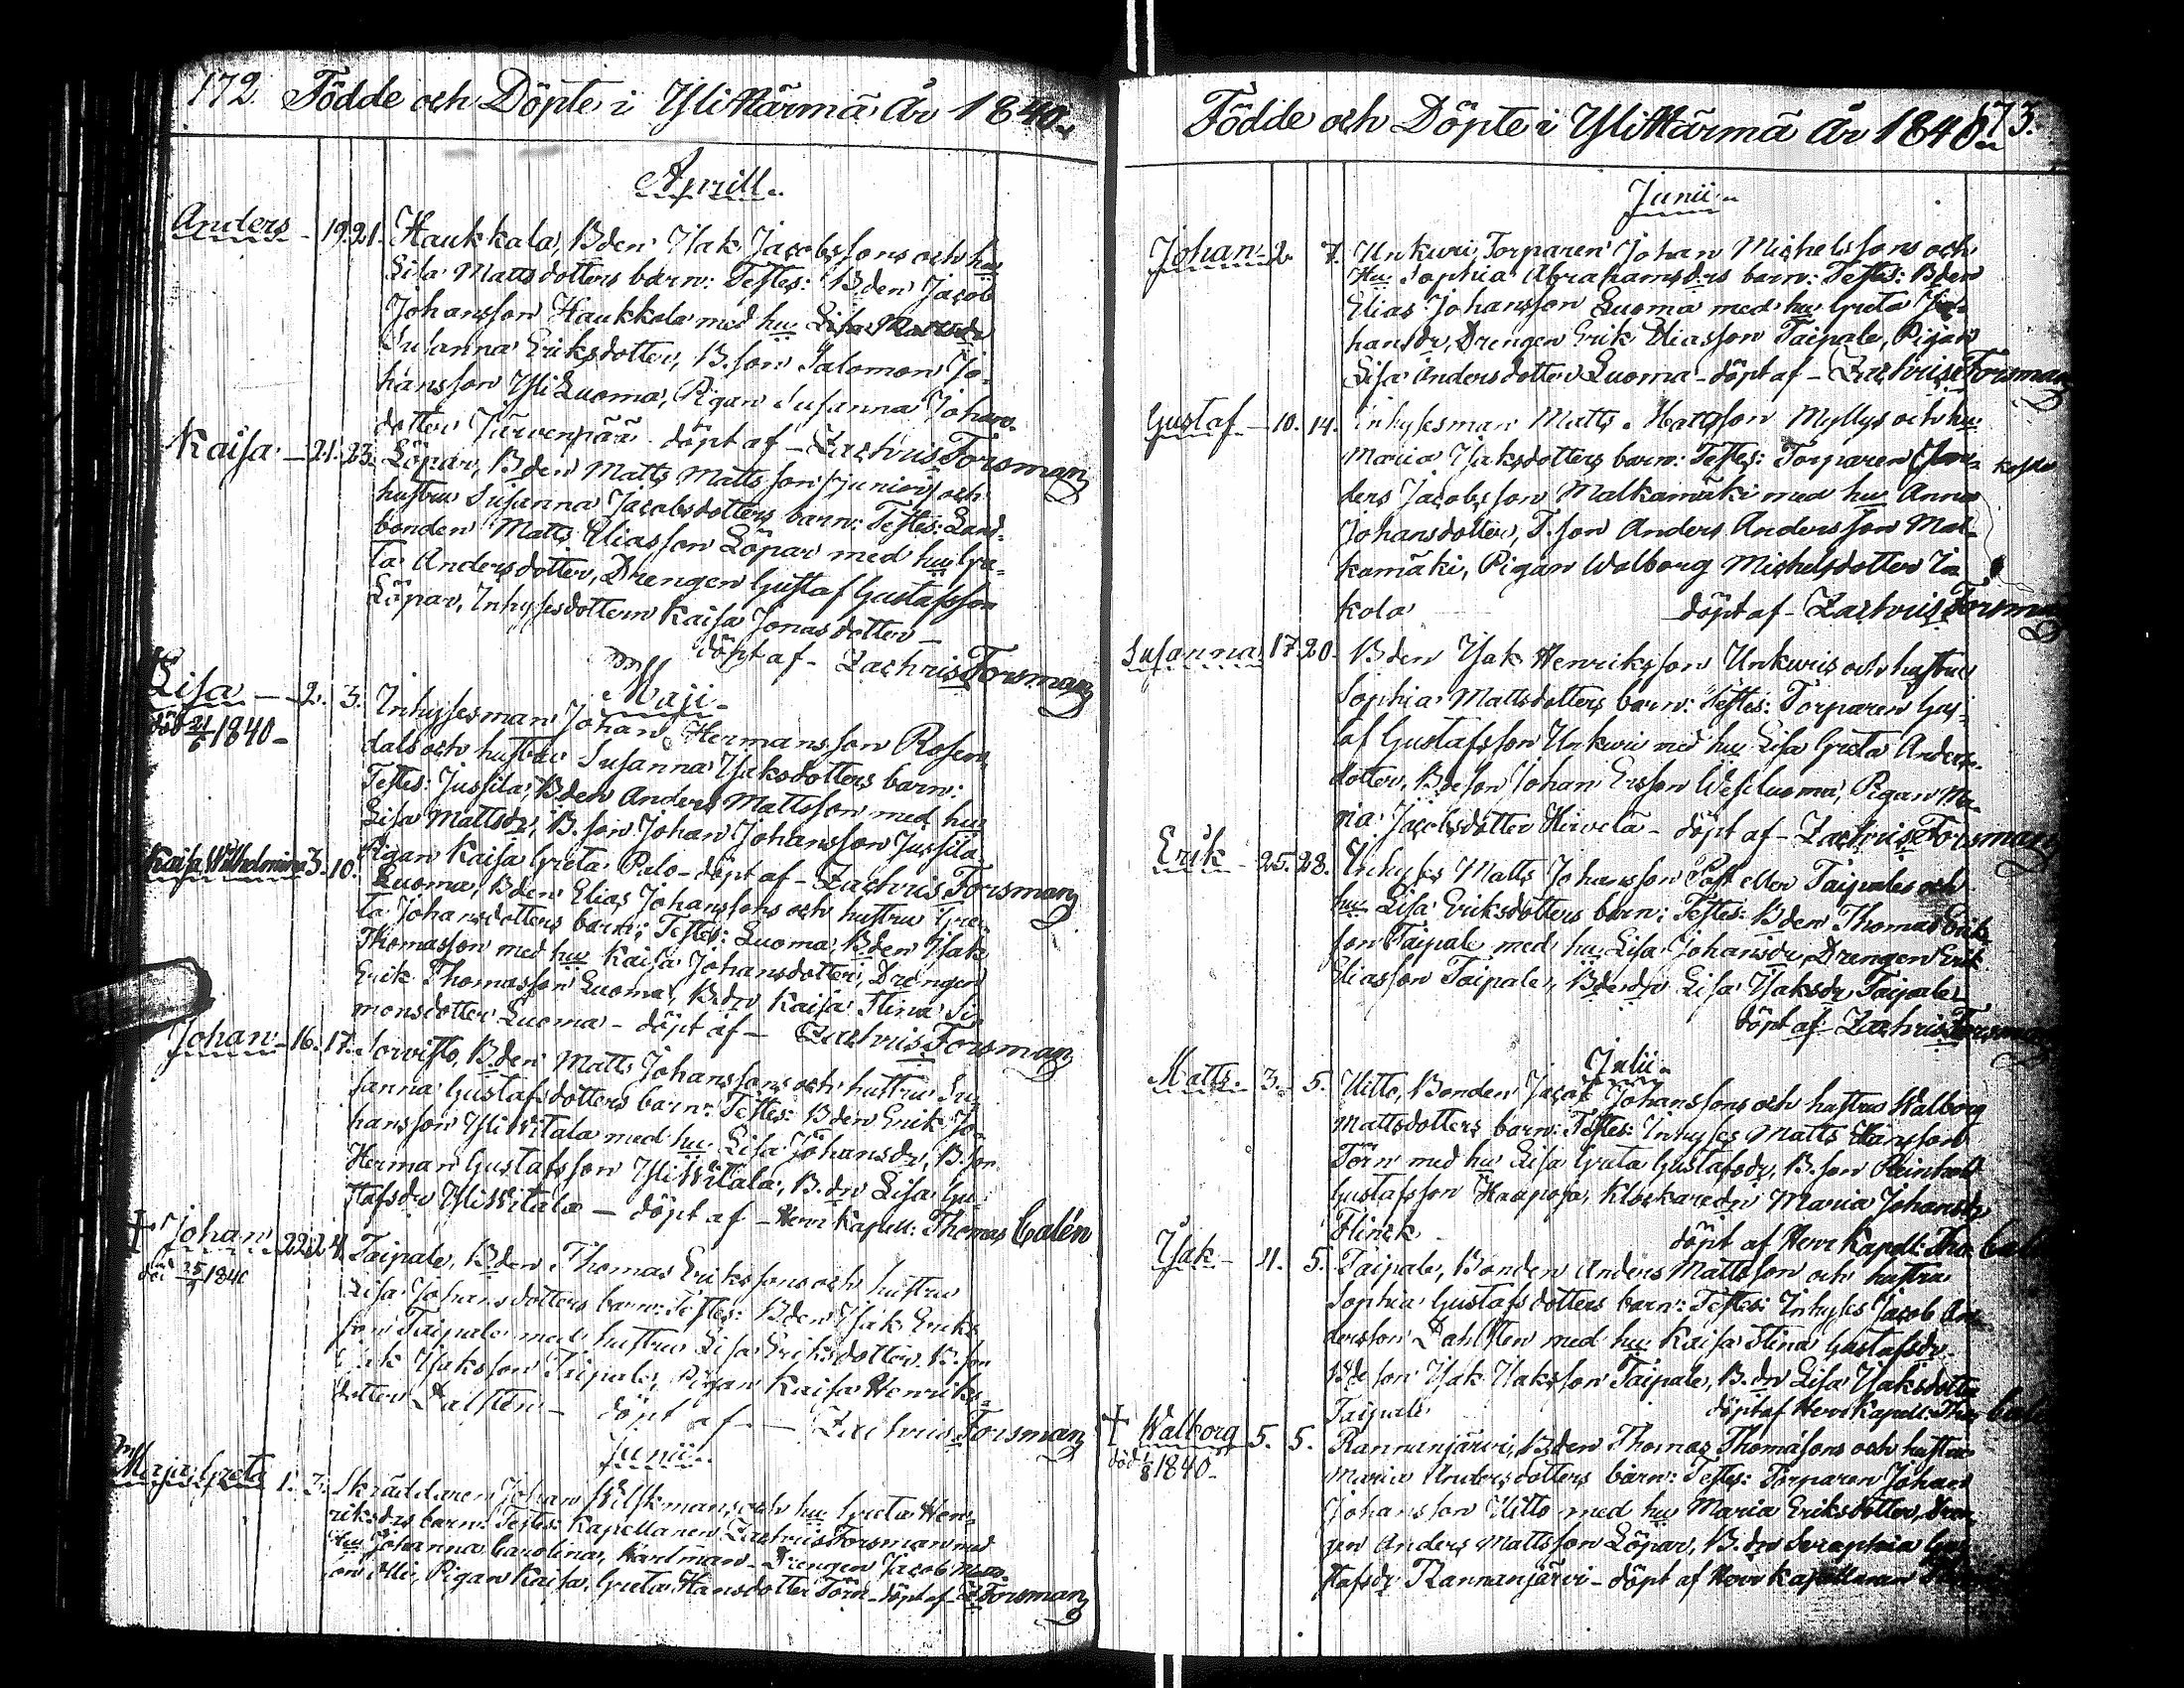 172. Födde och Döpte i Ylikärmä År 1840.
Aprill.
Anders - 19. 21. Haukkala, Bden Isak Jacobssons och hu
Lisa Mattsdotters barn: Testes: Bden Jacob
Johansson Haukkala med hu Lisa
Susanna Eriksdotter, B.son Salomon Jo-
hansson Yli Luoma, Pigan Susanna Johans-
dotter Järvenpää - döpt af - Zachris Forsman
Kaisa - 21. 23. Löpar, Bden Matts Mattsson (junior) och
hustru Susanna Jacobsdotters barn: Testes: Land-
bonden Matts Eliasson Löpar med hu Gre-
ta Andersdotter, Drengen Gustaf Gustafsson
Löpar, Inhysesdottern Kaisa Jonasdotter -
döpt af - Zachris Forsman
Maji -
Lisa - 2. 3. Inhysesman Johan Hermansson Rosen-
död 21/6 1840 -
dals och hustru Susanna Isaksdotters barn:
Testes: Jussila, Bden Anders Mattsson med hu
Lisa Mattsdr, B.son Johan Johansson Jussila
Pigan Kaisa Greta Palo - döpt af - Zachris Forsman
Kaisa Wilhelmina 3. 10. Luoma, Bden Elias Johanssons och hustru Gre-
ta Johansdotters barn: Testes: Luoma, Bden Isak
Thomasson med hu Kaisa Johansdotter, Drengen
Erik Thomasson Luoma, B.dr Kaisa Stina Si-
monsdotter Luoma - döpt af - Zachris Forsman
Johan - 16. 17. Sorvisto, Bden Matts Johanssons och hustru Su-
sanna Gustafsdotters barn: Testes: Bden Erik Jo-
hansson YliWitala med hu Lisa Johansdr, B.son
Herman Gustafsson YliWitala, B.dr Lisa Gu-
stafsdr YliWitala - döpt af - Herr Kapell: Thomas Calén
+ Johan 22. 24. Taipale, Bden Thomas Erikssons och hustru
död 25/ 1840
Lisa Johansdotters barn: Testes: Bden Isak Eriks-
son Taipale med hustru Lisa Eriksdotter, B.son
Erik Isaksson Taipale, Pigan Kaisa Henriks-
dotter Dalsten - döpt af - Zachris Forsman
Junii -
Maja Greta 1. 3. Skräddaren Johan Wilskmans och hu Greta Hen-
riksdrs barn: Testes: Kapellanen Zachris Forsman med
Hu Johanna Carolina, Karlman - Drengen Jacob
son Ylli, Pigan Kaisa Greta Hansdotter Törn - döpt af - Z Forsman
Födde och Döpte i Ylikärmä År 1840. 173.
Junii -
Johan - 2. 7. Unkuri, Torparen Johan Michelssons och
Hu Sophia Abrahamsdrs barn: Testes: Bden
Elias Johansson Luoma med hu Greta Jo-
hansdr, Drengen Erik Eliasson Taipale, Pigan
Lisa Andersdotter Luoma - döpt af - Zachris Forsman
Gustaf - 10. 14. Inhysesman Matts Mattsson Myllys och hu
Maria Isaksdotters barn: Testes: Torparen An-
ders Jacobsson Malkamäki med hu Anna
Johansdotter, T.son Anders Andersson Mal-
kamäki, Pigan Walborg Michelsdotter
kola döpt af - Zachris Forsman
Susanna 17. 20. Bden Isak Henriksson Unkuris och hustru
Sophia Mattsdotters barn: Testes: Torparen Gus-
taf Gustafsson Unkuri med hu Lisa Greta Anders-
dotter, Bdeson Johan Ersson Wesiluoma, Pigan Ma-
ria Jacobsdotter Hirvelä - döpt af - Zachris Forsman
Erik - 25. 28. Inhyses Matts Johansson Post eller Taipales och
hu Lisa Eriksdotters barn: Testes: Bden Thomas Erik-
son Taipale med hu Lisa Johansdr, Drengen Erik
Eliasson Taipale, Bdedr Lisa Isaksdr Taipale -
döpt af - Zachris Forsman
Julii -
Matts - 3. 5. Uitto, Bonden Jacob Johanssons och hustru Walborg
Mattsdotters barn: Testes: Inhyses Matts Hansson
Törn med hu Lisa Greta Gustafsdr, B.son Reinhold
Gustafsson Haapoja, Klockaredr Maria Johansdr
Flinck - döpt af Herr Kapell: Tho: Calén
Isak - 4. 5. Taipale, Bonden Anders Mattsson och hustru
Sophia Gustafsdotters barn: Testes: Inhyses Jacob An-
dersson Dahlsten med hu Kaisa Stina Gustafsdr
Bdeson Isak Isaksson Taipale, B.dr Lisa Isaksdotter
Taipale döpt af Herr Kapell: Tho:
+ Walborg 5. 5. Rannanjärvi, Bden Thomas Thomassons och hustru
död 1/8 1840 -
Maria Andersdotters barn: Testes: Torparen Johan
Johansson Uitto med hu Maria Eriksdotter, Dren-
gen Anders Mattsson Löpar, B.dr Seraphia Gus-
tafsdr Rannanjärvi - döpt af Herr Kapellanen